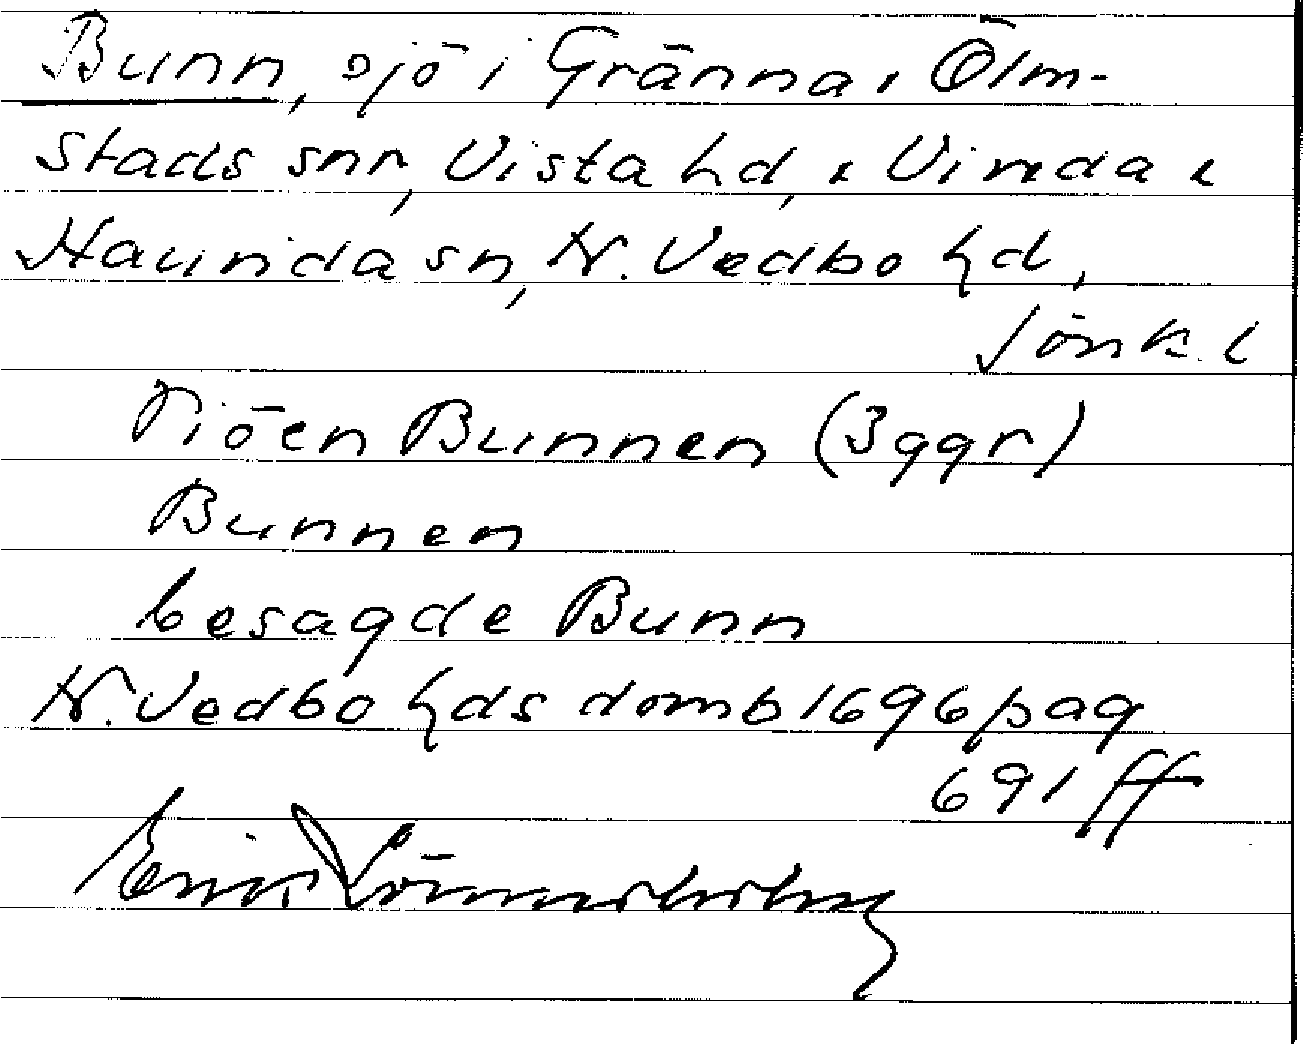 Bunn, sjö i Gränna & Ölm-
stads snr, Vista hd, & Vireda &
Haurida sn, N. Vedbo hd,
Jönk. l
Siöen Bunnen (3 ggr)
Bunnen
besagde Bunn
N. Vedbo hds domb 1696 pag
691 ff
Erik